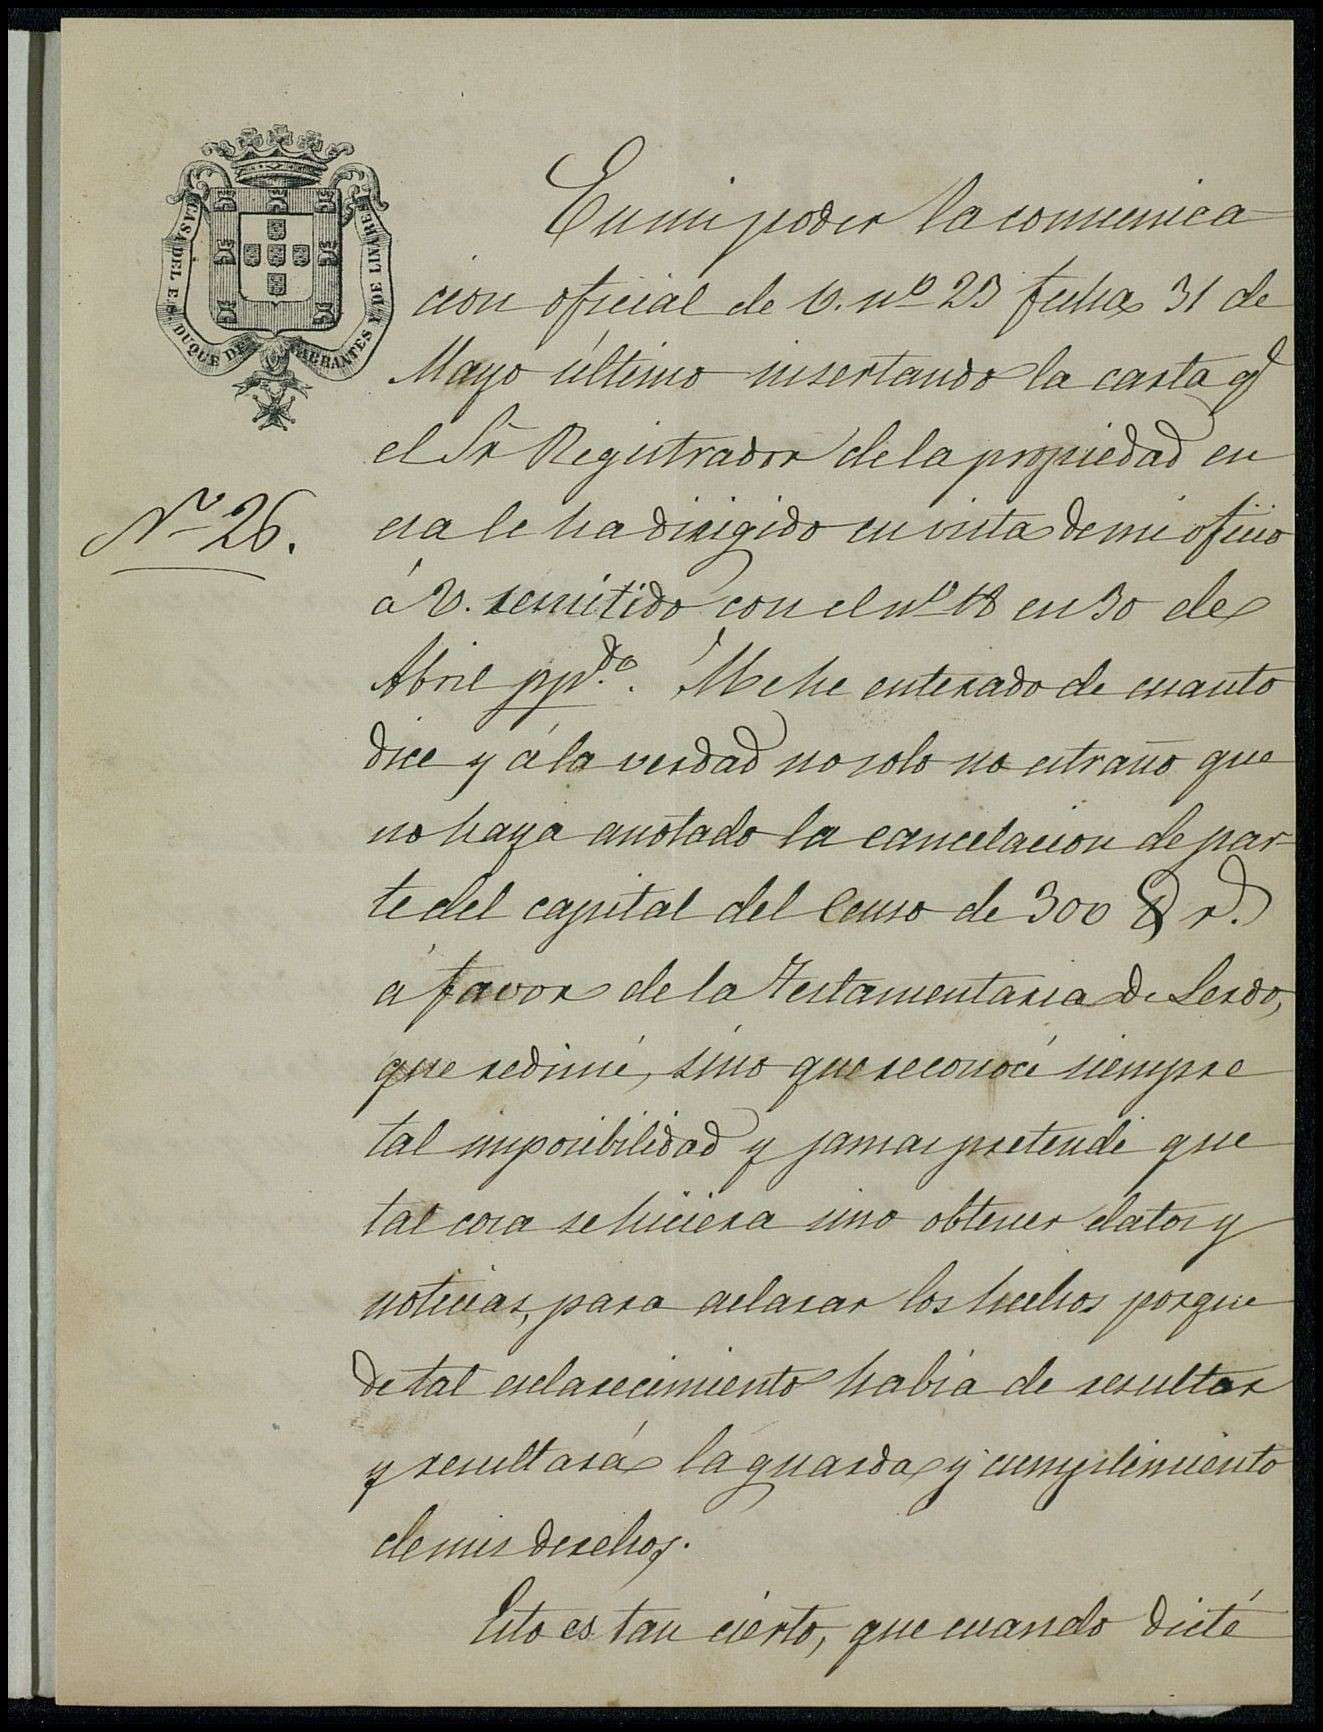 CASA DEL E. S. DUQUE DE ABRANTES Y DE LINARES
En mi poder la comunica
cion oficial de V. nº 23 fecha 31 de
Mayo último insertando la carta q.
el Sr Registrador de la propiedad en
esa le ha dirigido en vista de mi oficio
Nº 26.
á V. remitido con el nº 18 en 30 de
Abril ppdo. Me he enterado de cuanto
dice y á la verdad no solo no estraño que
no haya anotado la cancelacion de par-
te del capital del Censo de 300 r.
á favor de la Testamentaria de Lerdo,
que redimí, sino que reconocí siempre
tal imposibilidad y jamas pretendi que
tal cosa se hiciera sino obtener datos y
noticias, para aclarar los hechos porque
de tal esclarecimiento habia de resultar
y resultará la guarda y cumplimiento
de mis derechos.
Esto es tan cierto, que cuando dicté